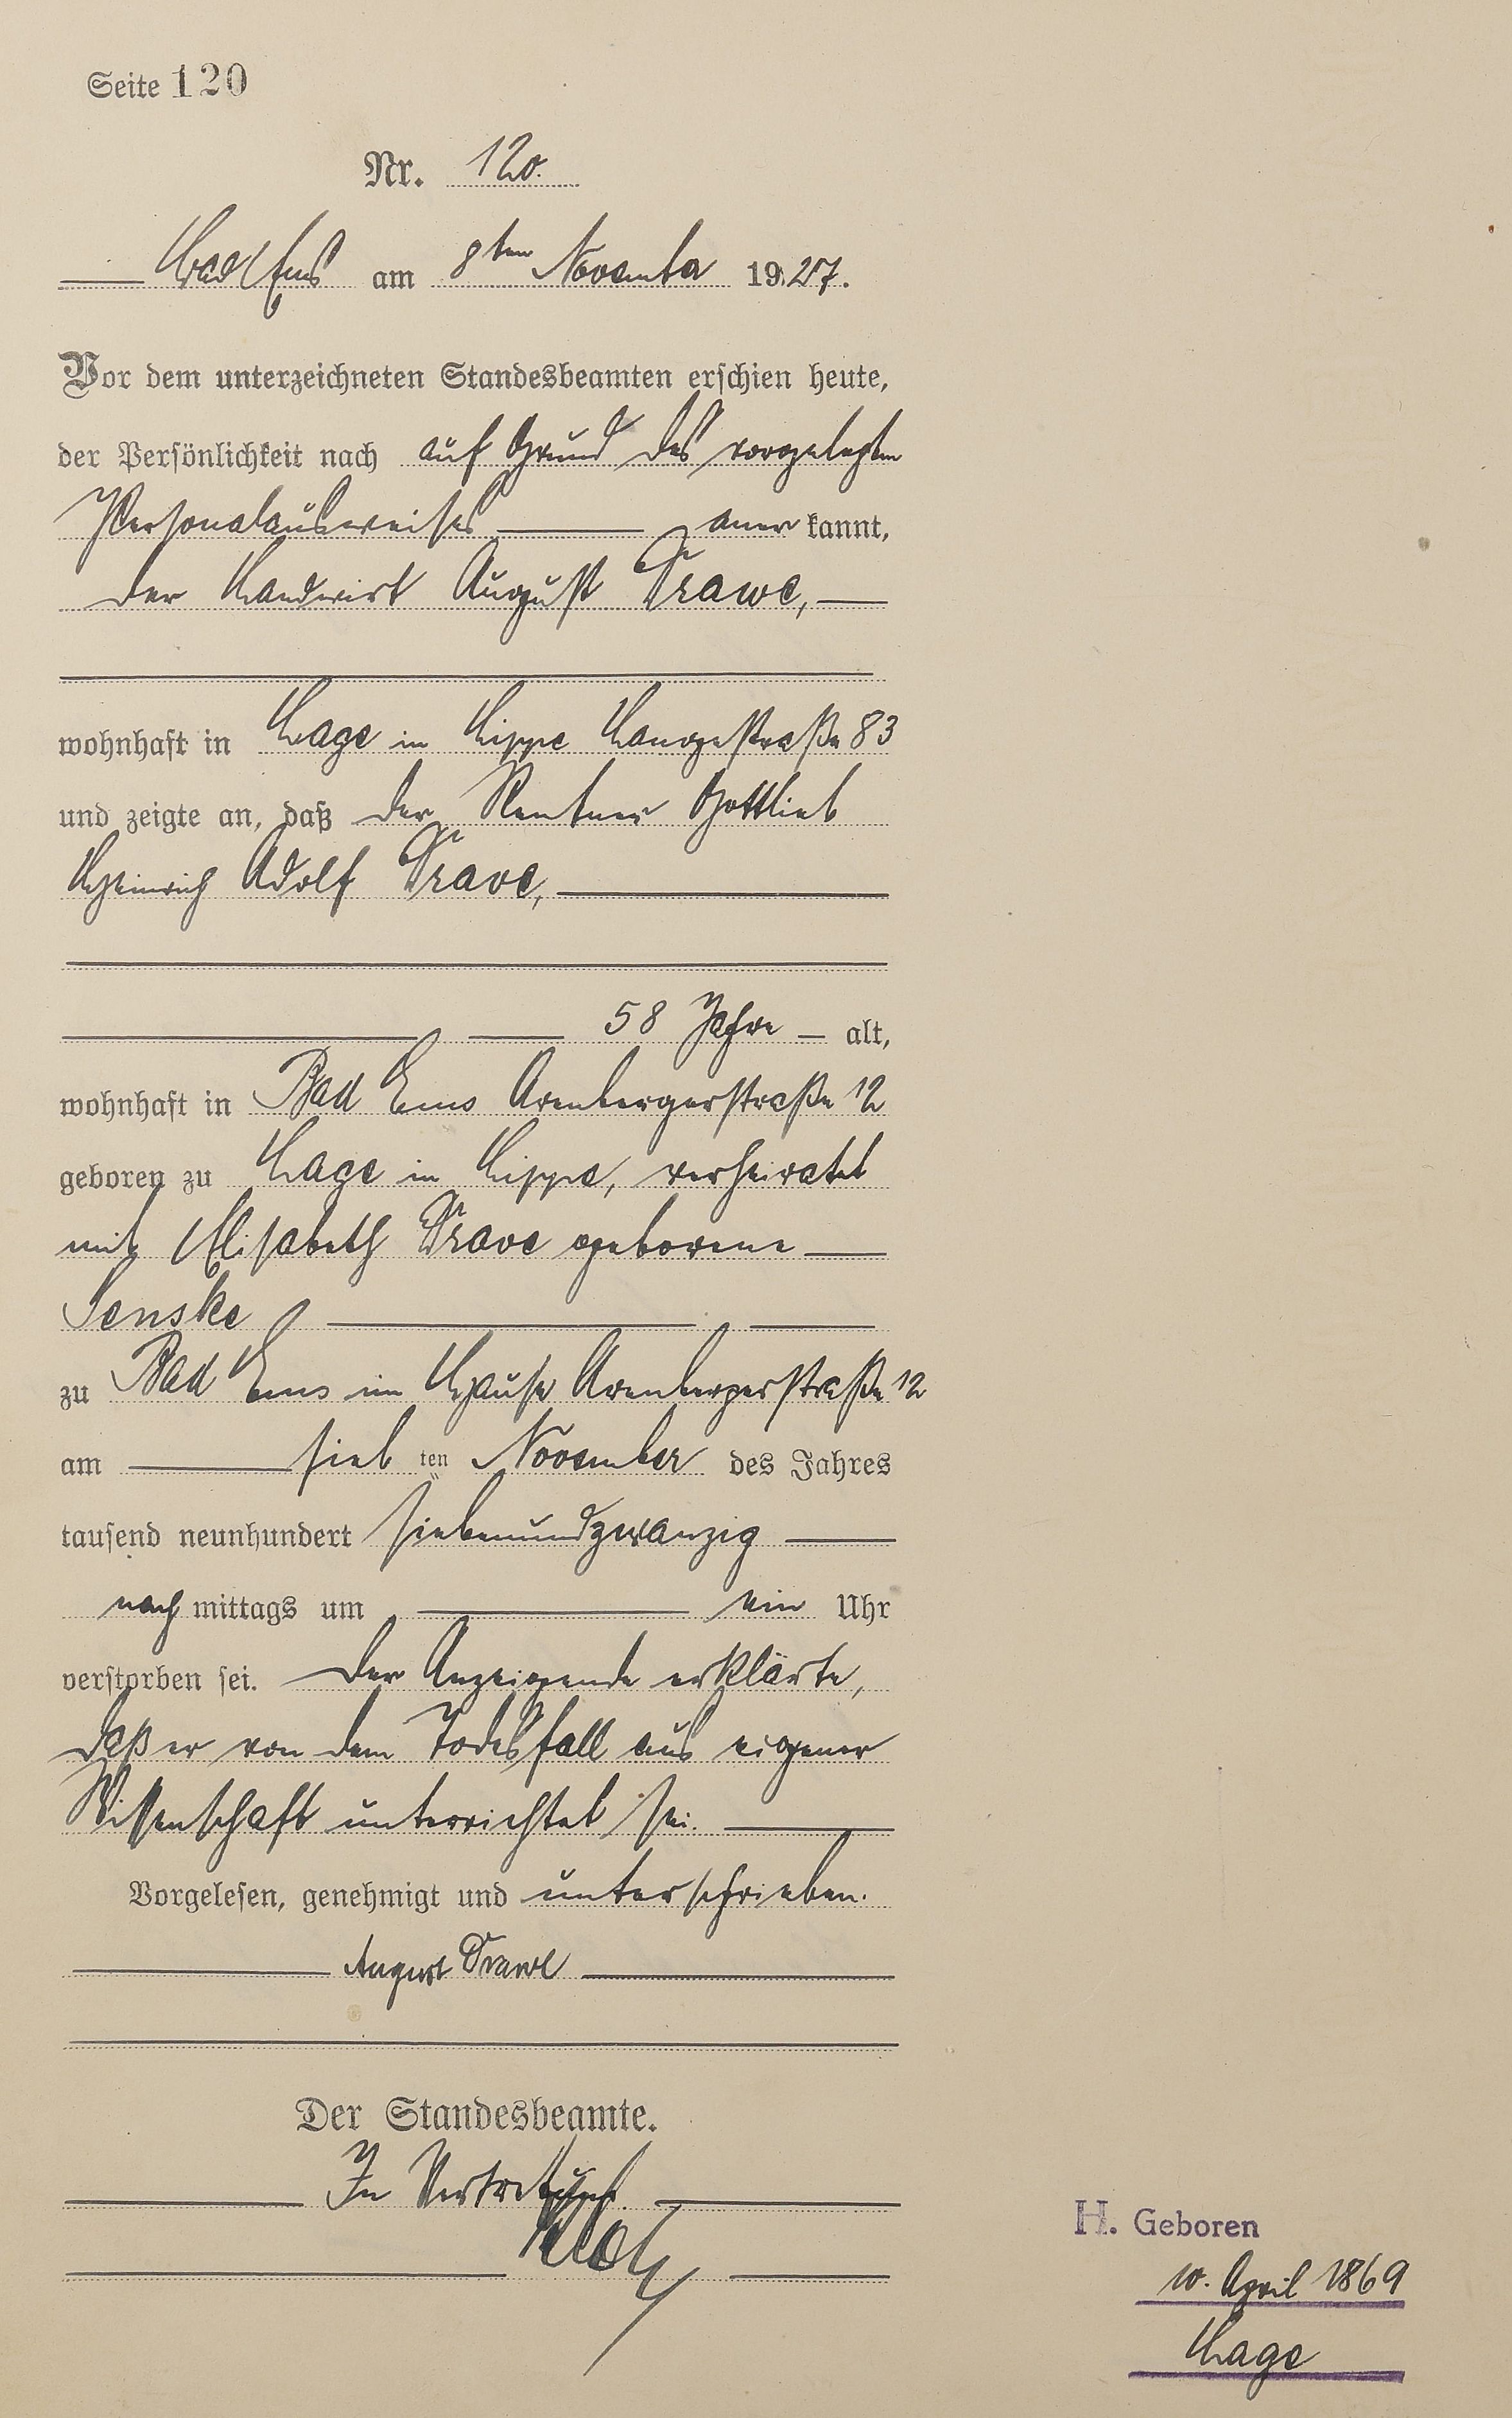 Seite 120
Nr. 120.
Bad Ems am 8ten November 1927.
Vor dem unterzeichneten Standesbeamten erschien heute,
der Persönlichkeit nach auf Grund des vorgelegten
Personalausweises anerkannt,
der Landwirt August Trawe,
wohnhaft in Lage in Lippe Langestraße 83
und zeigte an, daß der Rentner Gottlieb
Heinrich Adolf Trave,
58 Jahre alt,
wohnhaft in Bad Ems Arenbergerstraße 12
geboren zu Lage in Lippe, verheiratet
mit Elisabeth Trave geborene
Senske
zu Bad Ems im Hause Arenbergerstraße 12
am siebten November des Jahres
tausend neunhundert siebenundzwanzig
nachmittags um ein Uhr
verstorben sei. Der Anzeigende erklärte,
daß er von dem Todesfall aus eigener
Wissenschaft unterrichtet sei.
Vorgelesen, genehmigt und unterschrieben.
August Trawe
Der Standesbeamte.
In Vertretung.
H. Geboren
10. April 1869
Lage